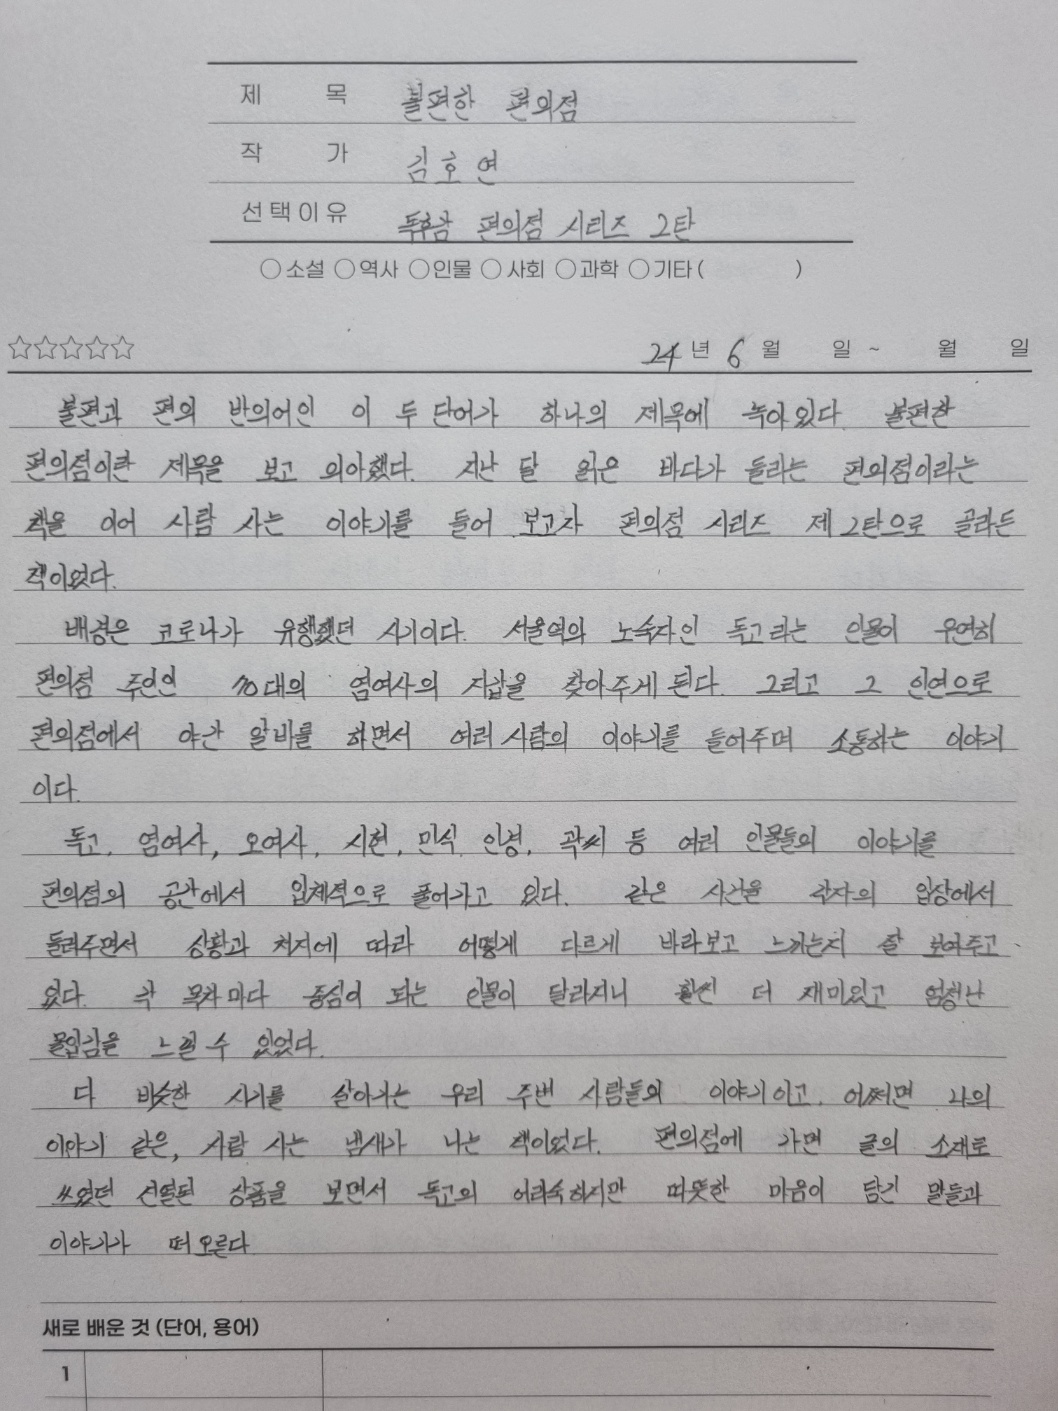 제 목 불편한 편의점
작 가 김호연
선택이유 독후감 편의점 시리즈 2탄
○소설 ○역사 ○인물 ○사회 ○과학 ○기타( )
☆☆☆☆☆ 24년 6월 일 ~ 월 일
불편과 편의 반의어인 이 두 단어가 하나의 제목에 녹아있다. 불편한
편의점이란 제목을 보고 의아했다. 지난 달 읽은 바다가 들리는 편의점이라는
책을 이어 사람 사는 이야기를 들어 보고자 편의점 시리즈 제 2탄으로 골라든
책이었다.
배경은 코로나가 유행했던 시기이다. 서울역의 노숙자인 독고라는 인물이 우연히
편의점 주인인 70대의 염여사의 지갑을 찾아주게 된다. 그리고 그 인연으로
편의점에서 야간 알바를 하면서 여러 사람의 이야기를 들어주며 소통하는 이야기
이다.
독고, 염여사, 오여사, 시현, 민식, 인경, 곽씨 등 여러 인물들의 이야기를
편의점의 공간에서 입체적으로 풀어가고 있다. 같은 사건을 각자의 입장에서
들려주면서 상황과 처지에 따라 어떻게 다르게 바라보고 느끼는지 잘 보여주고
있다. 각 목차마다 중심이 되는 인물이 달라지니 훨씬 더 재미있고 엄청난
몰입감을 느낄 수 있었다.
다 비슷한 시기를 살아가는 우리 주변 사람들의 이야기이고, 어쩌면 나의
이야기 같은, 사람 사는 냄새가 나는 책이었다. 편의점에 가면 글의 소재로
쓰였던 진열된 상품을 보면서 독고의 어리숙하지만 따뜻한 마음이 담긴 말들과
이야기가 떠오른다
새로 배운 것 (단어, 용어)
1